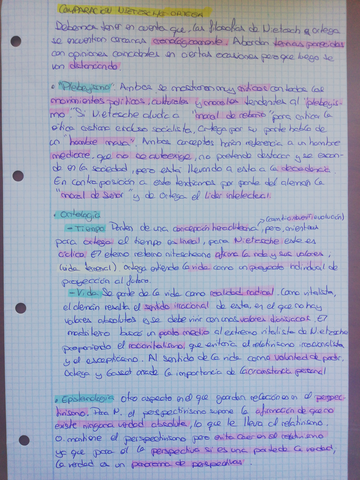 COMPARACIÓN NIETZSCHE ORTEGA
Debemos tener en cuenta que, las filosofías de Nietzsche y Ortega
se encuentran cercanas cronológicamente. Abordan temas parecidos
con opiniones coincidentes en ciertas ocasiones pero que luego se
van distanciando
• "Plebeyismo" Ambos se mostraron muy críticos con todos los
movimientos políticos, culturales y morales tendentes al "plebeyis-
mo." Si Nietzsche aludía a "moral de rebaño" para criticar la
ética cristiana e incluso socialista, Ortega por su parte habla de
un "hombre masa". Ambos conceptos hacen referencia a un hombre
mediocre, que no se autoexige, no pretende destacar y se escon-
de en la sociedad, pero está llevando a esta a la decadencia.
En contraposición a este tendremos por parte del alemán la
"moral de señor" y de Ortega el líder intelectual.
• Ontología
- Tiempo Parten de una concepción heraclitiana, pero, mientras
para Ortega el tiempo es lineal, para Nietzsche este es
cíclico. El eterno retorno nietzscheano afirma la vida y sus valores,
(vida terrenal) Ortega entiende la vida como un proyecto individual de
proyección al futuro.
- Vida Se parte de la vida como realidad radical. Como vitalista,
el alemán resalta el sentido irracional de esta, en el que no hay
valores absolutos y se debe vivir con unos valores dionisíacos. El
madrileño busca un punto medio al extremo vitalista de Nietzsche
proponiendo el raciovitalismo, que evitaría el relativismo irracionalista
y el escepticismo. Al sentido de la vida como voluntad de poder,
Ortega y Gasset añade la importancia de la circunstancia personal
• Epistemología Otro aspecto en el que guardan relación es en el perspec-
tivismo. Para N. el perspectivismo supone la afirmación de que no
existe ninguna verdad absoluta, lo que le lleva al relativismo.
O. mantiene el perspectivismo pero evita caer en el relativismo
ya que para él la perspectiva sí es una parte de la verdad,
la verdad es un panorama de perspectivas